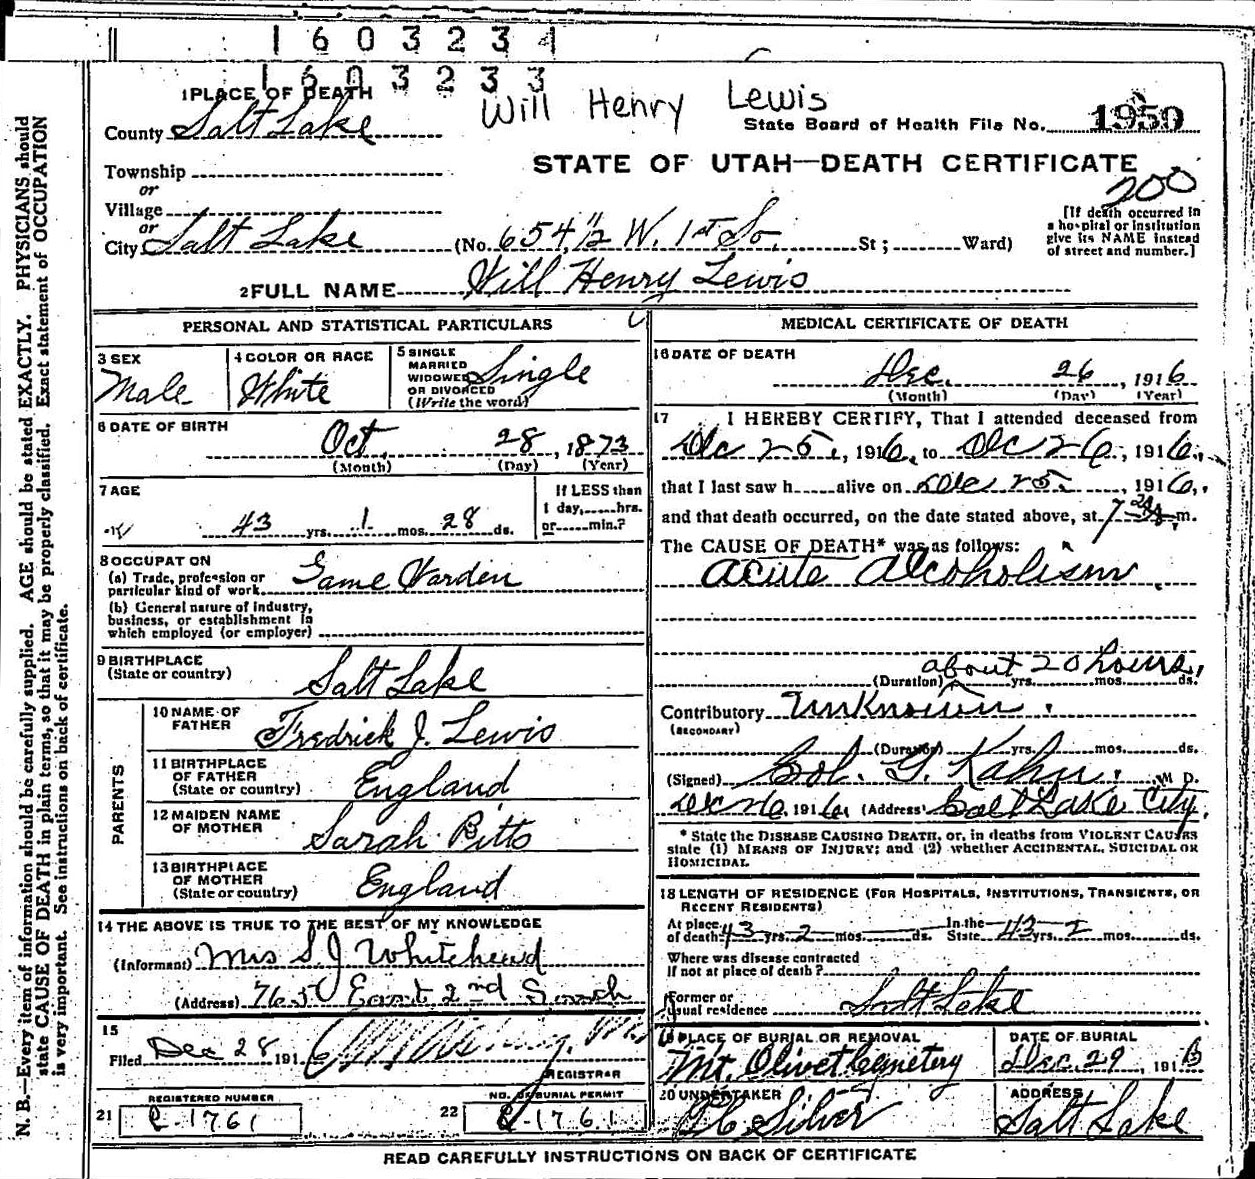 1603234
1603233
1 PLACE OF DEATH
Will Henry Lewis
County Salt Lake
State Board of Health File No. 1950
STATE OF UTAH—DEATH CERTIFICATE
Township
or
200
Village
or
[If death occurred in a hospital or institution give its NAME instead of street and number.]
City Salt Lake (No. 654 1/2 W. 1st So. St; Ward)
2 FULL NAME Will Henry Lewis
PERSONAL AND STATISTICAL PARTICULARS
3 SEX
Male
4 COLOR OR RACE
White
5 SINGLE
MARRIED
WIDOWED
OR DIVORCED
(Write the word)
Single
6 DATE OF BIRTH
Oct. 28, 1873
(Month) (Day) (Year)
7 AGE
43 yrs. 1 mos. 28 ds.
If LESS than
1 day, hrs.
or min.?
8 OCCUPATION
(a) Trade, profession or
particular kind of work Game Warden
(b) General nature of industry,
business, or establishment in
which employed (or employer)
9 BIRTHPLACE
(State or country)
Salt Lake
PARENTS
10 NAME OF
FATHER
Fredrick J. Lewis
11 BIRTHPLACE
OF FATHER
(State or country)
England
12 MAIDEN NAME
OF MOTHER
Sarah Pitts
13 BIRTHPLACE
OF MOTHER
(State or country)
England
14 THE ABOVE IS TRUE TO THE BEST OF MY KNOWLEDGE
(Informant) Mrs S J Whitehead
(Address) East 2nd South
15
Filed Dec 28 1916
REGISTRAR
REGISTERED NUMBER
21 1761
NO. OF BURIAL PERMIT
22 1761
MEDICAL CERTIFICATE OF DEATH
16 DATE OF DEATH
Dec. 26, 1916
(Month) (Day) (Year)
17 I HEREBY CERTIFY, That I attended deceased from
Dec 25, 1916, to Dec 26, 1916,
that I last saw h alive on Dec 25, 1916,
and that death occurred, on the date stated above, at 7 m.
The CAUSE OF DEATH* was as follows:
acute alcoholism
about 20 hours.
(Duration) yrs. mos. ds.
Contributory Unknown.
(SECONDARY)
(Duration) yrs. mos. ds.
(Signed) Sol. G. Kahn, M D.
Dec 26, 1916 (Address) Salt Lake City.
* State the DISEASE CAUSING DEATH, or, in deaths from VIOLENT CAUSES
state (1) MEANS OF INJURY; and (2) whether ACCIDENTAL, SUICIDAL OR
HOMICIDAL.
18 LENGTH OF RESIDENCE (FOR HOSPITALS, INSTITUTIONS, TRANSIENTS, OR
RECENT RESIDENTS)
At place
of death 43 yrs. 2 mos. ds.
In the
State 43 yrs. 2 mos. ds.
Where was disease contracted
if not at place of death?
Former or
usual residence Salt Lake
19 PLACE OF BURIAL OR REMOVAL
Mt. Olivet Cemetery
DATE OF BURIAL
Dec. 29, 191
20 UNDERTAKER
Silver
ADDRESS
Salt Lake
READ CAREFULLY INSTRUCTIONS ON BACK OF CERTIFICATE
N. B.—Every item of information should be carefully supplied. AGE should be stated EXACTLY. PHYSICIANS should
state CAUSE OF DEATH in plain terms, so that it may be properly classified. Exact statement of OCCUPATION
is very important. See instructions on back of certificate.